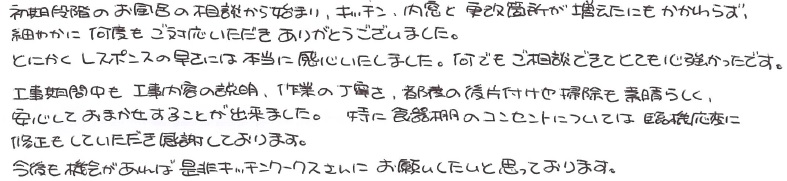 初期段階のお風呂の相談から始まり、キッチン、内窓と更改箇所が増えたにもかかわらず、
細やかに何度もご対応いただきありがとうございました。
とにかくレスポンスの早さには本当に感心いたしました。何でもご相談できてとても心強かったです。
工事期間中も工事内容の説明、作業の丁寧さ、都度の後片付けや掃除も素晴らしく、
安心しておまかせすることが出来ました。 特に食器棚のコンセントについては臨機応変に
修正もしていただき感謝しております。
今後も機会があれば是非キッチンワークスさんにお願いしたいと思っております。